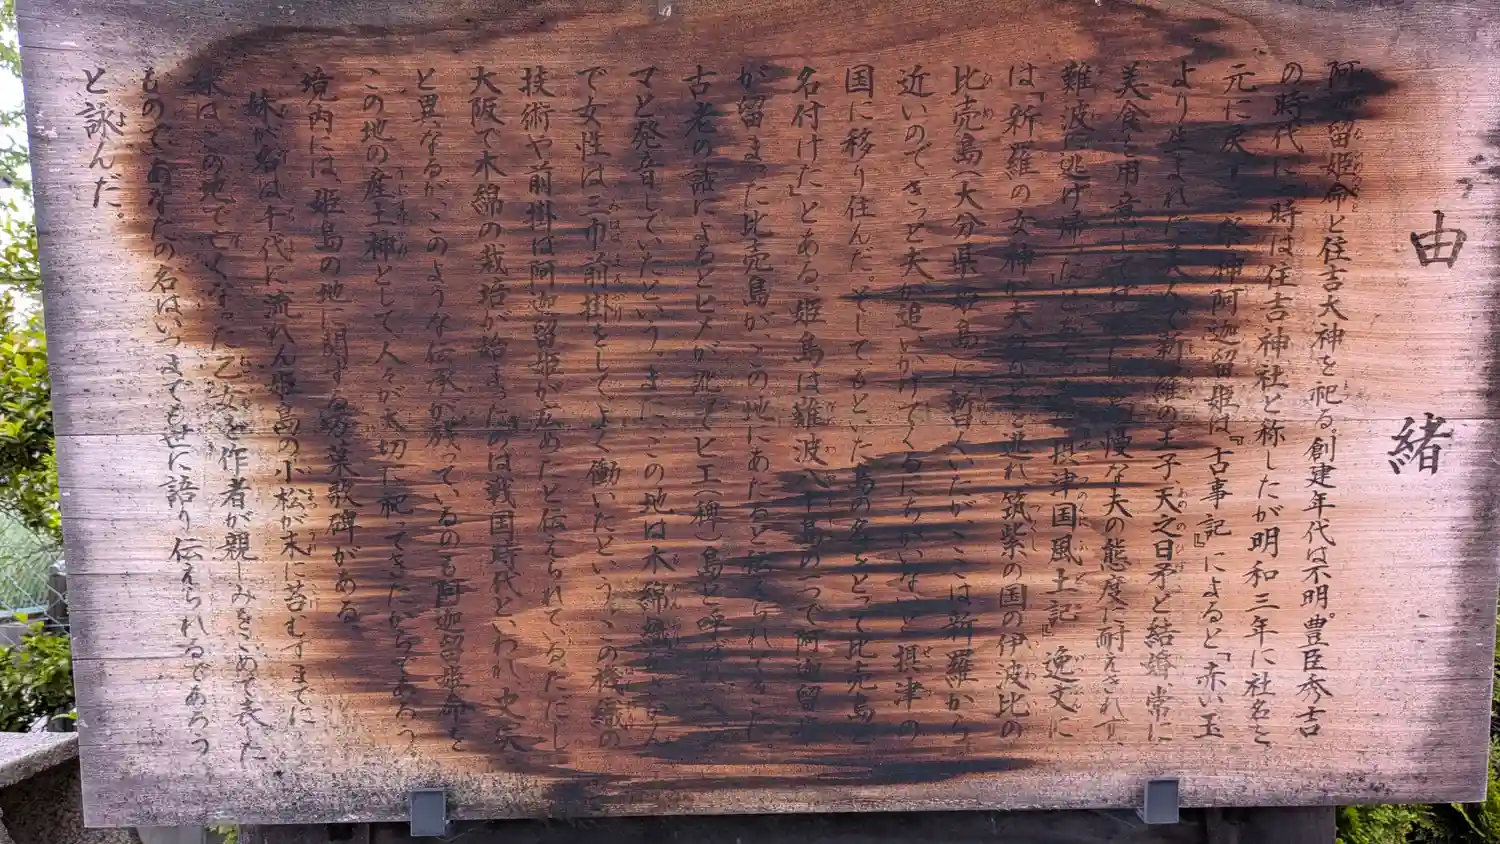 由緒
阿迦留姫命と住吉大神を祀る。創建年代は不明。豊臣秀吉
の時代に 時は住吉神社と称したが明和三年に社名を
元に戻す。祭神阿迦留姫は『古事記』によると「赤い玉
より生まれた美人で新羅の王子、天之日矛と結婚、常に
美食を用意して 慢な夫の態度に耐えきれず、
難波に逃げ帰った 『摂津国風土記』逸文に
は「新羅の女神が夫のもとを逃れ筑紫の国の伊波比の
比売島(大分県・姫島)に暫く 、ここは新羅から
近いので、きっと夫が追いかけてくるにちがいないと摂津の
国に移り住んだ。そしてもといた島の名をとって比売島と
名付けた」とある。姫島は難波八十島の一つで阿迦留
が留まった比売島が、この地にあたると伝えられて
古老の話によるとヒメが訛ってヒエ(稗)島と呼ばれ、
マと発音していたという。また、この地は木綿
で女性は三巾前掛をしてよく働いたという、この機織の
技術や前掛は阿迦留姫が広めたと伝えられている。たにし
大阪で木綿の栽培が始まったのは戦国時代といわれ、史実
と異なるが、このような伝承が残っているのも阿迦留姫命を
この地の産土神として人々が大切に祀ってきたからであろう
境内には、姫島の地に関する万葉歌碑がある。
妹が名は千代に流れん姫島の小松が末に苔むすまでに
妹はこの地で亡くなった乙女を作者が親しみをこめて表した
ものであなたの名はいつまでも世に語り伝えられるであろう
と詠んだ。